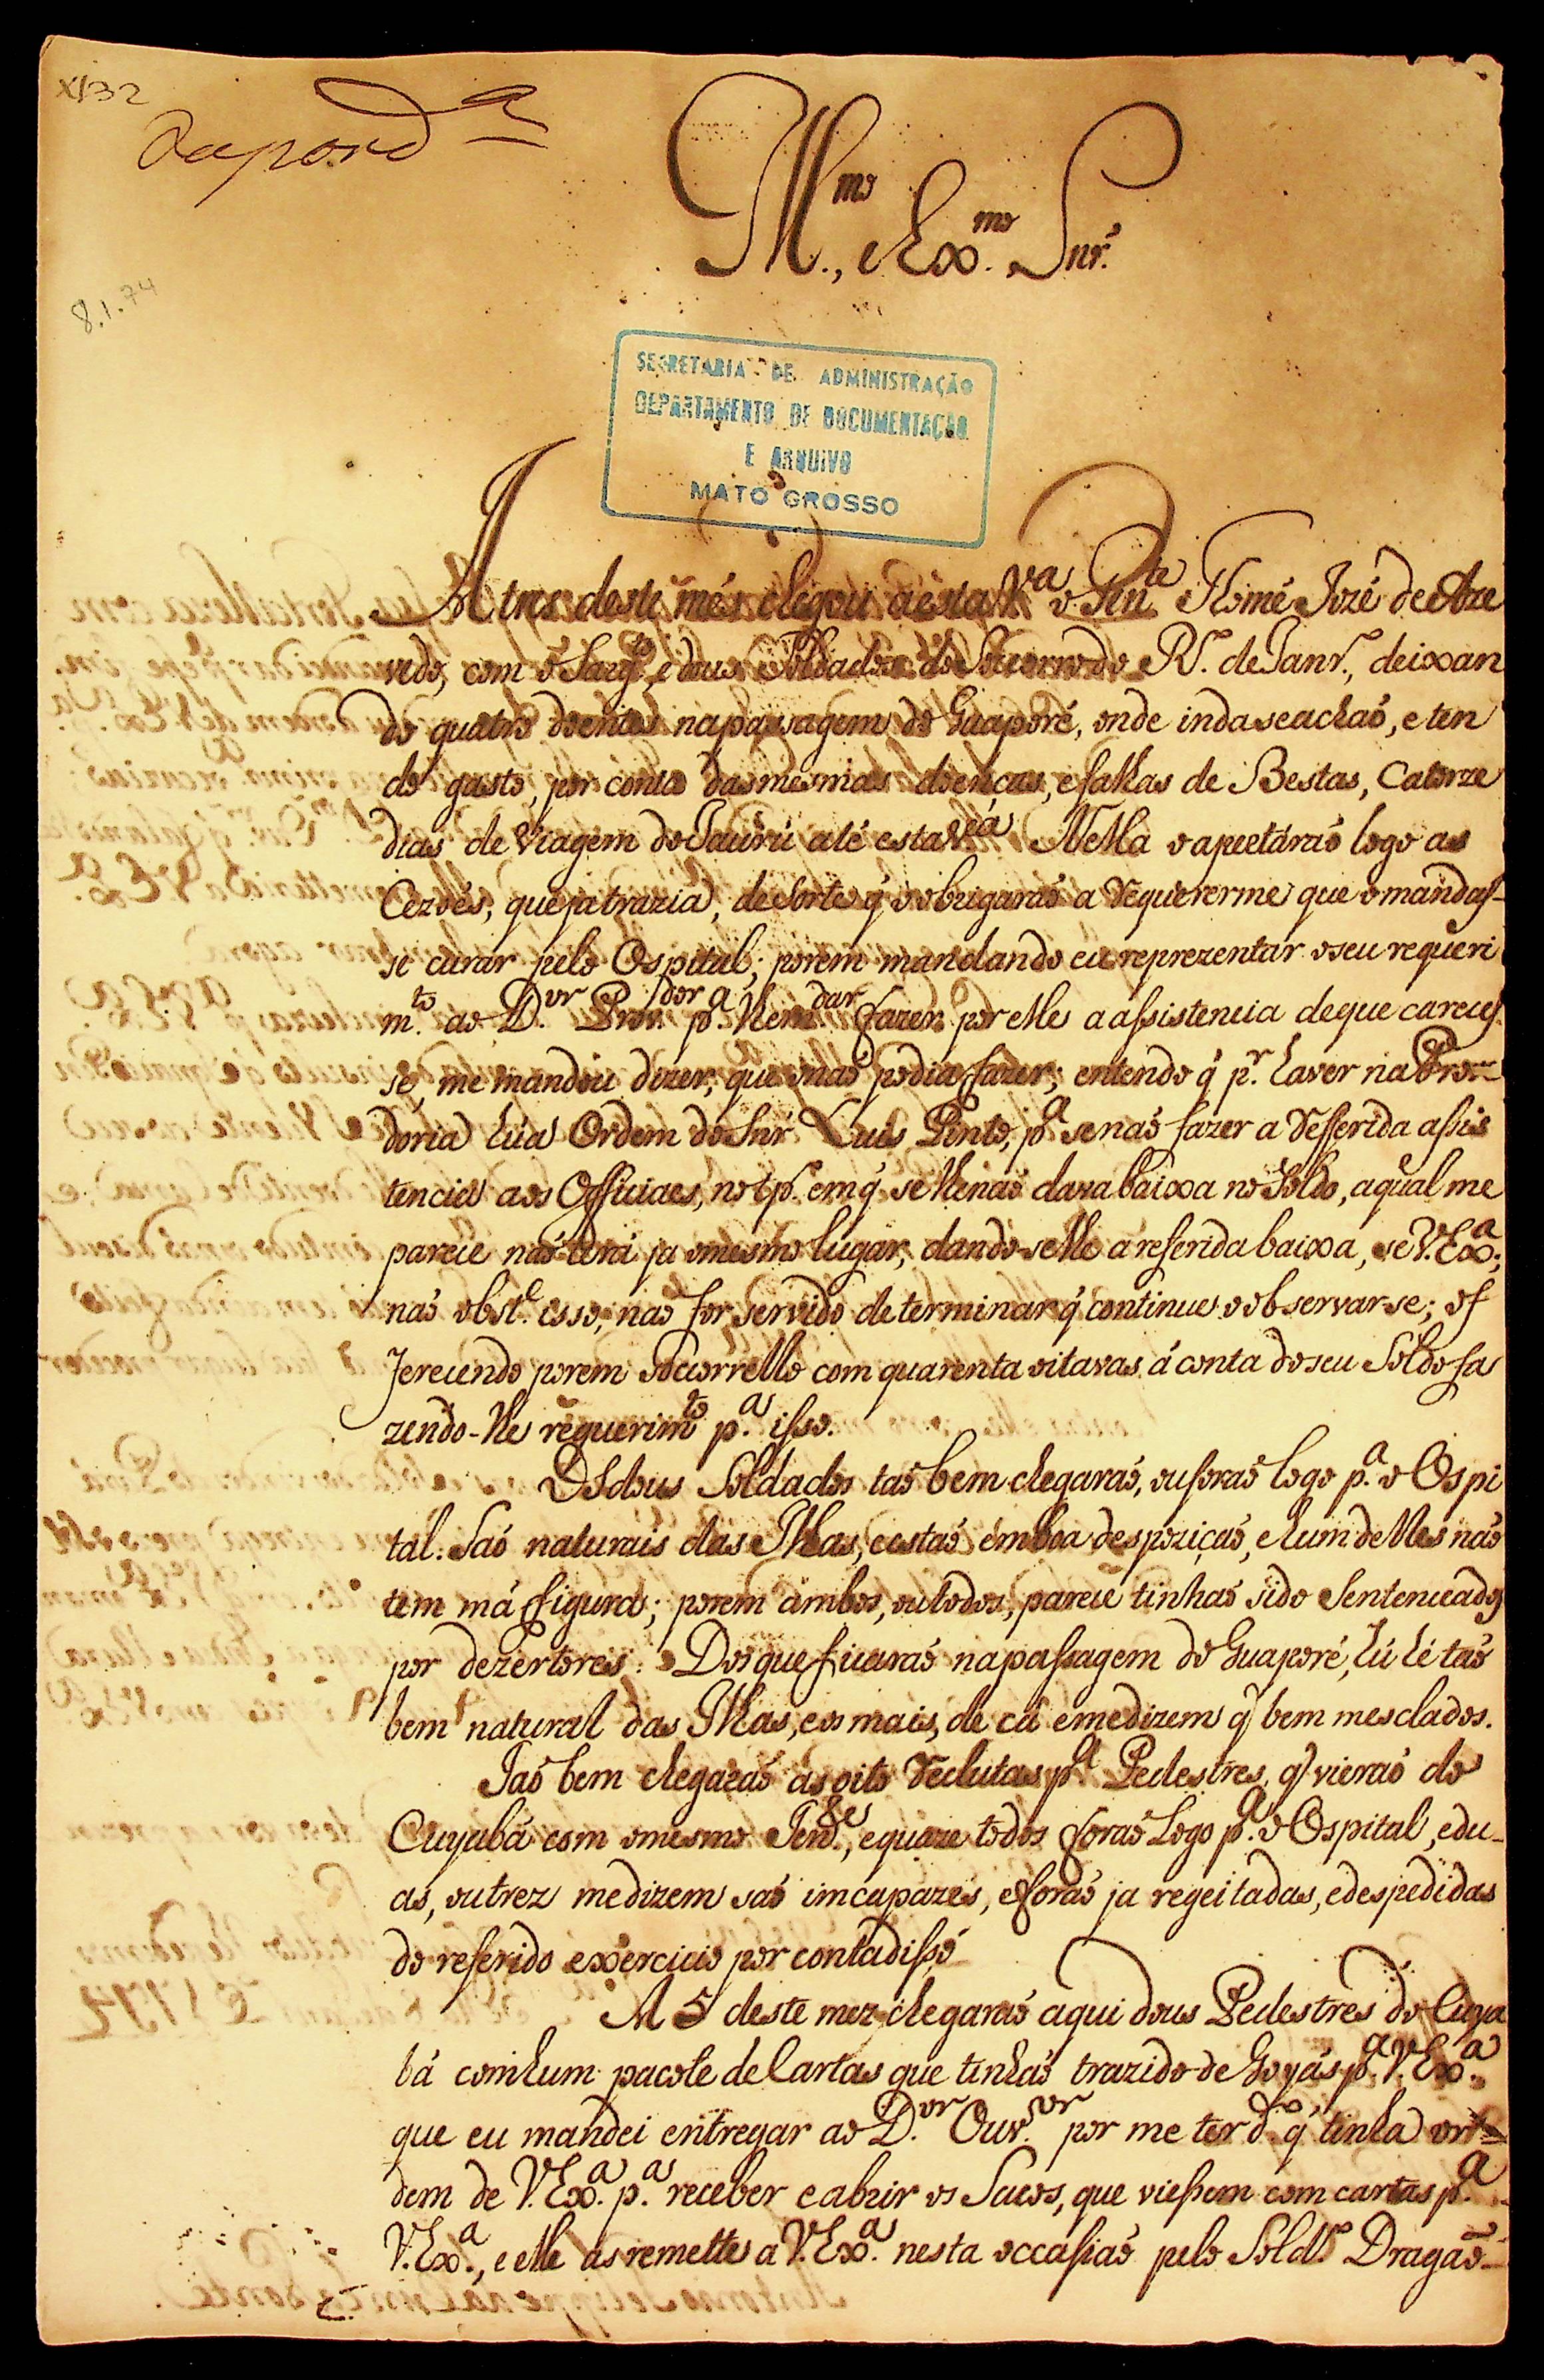 X/32
Resp.ord.ª
8.1.74
Ill.mo, e Ex.mo Snr.
SECRETARIA DE ADMINISTRAÇÃO
DEPARTAMENTO DE DOCUMENTAÇÃO
E ARQUIVO
MATO GROSSO
A tres deste més chegou a esta V.a o Thomé Jozé de Aze
vedo, com o Sarg.to, e dous Soldados do Socorro do R.º de Janr.º, deixan
do quatro doentes na passagem do Guaporé, onde inda se achaõ, e ten
do gasto, por conta das mesmas doenças, e falhas de Bestas, Catorze
dias de Viagem do Jaurú até esta V.ª Nella o apertáraõ logo as
Cezoés, que ja trazia, de Sorte q̃ o obrigaraõ a requererme que o mandaſ-
se curar pelo Ospital; porem mandando eu reprezentar o seu requeri
m.to ao D.or Prov.dor p.ª lhe mandar fazer por elle a aſsistencia de que careceſ
se, me mandou dizer, que o naõ podia fazer; entendo q̃ p.r haver na Prove-
doria húa Ordem do Snr Luis Pinto, p.ª se naõ fazer a refferida aſsis
tencia aos Officiaes, no tp.º em q̃ se lhe naõ dava baixa no Soldo, a qual me
parece naõ terá ja o mesmo lugar, dandoselhe a referida baixa, se V. Ex.ª,
naõ obst.e isso, naõ for servido determinar q̃ continue o observar-se; of
ferecendo porem socorrello com quarenta oitavas á conta do seu Soldo fa
zendo-lhe requerim.to p.ª iſso.
Os dous Soldados taõ bem chegaraõ, ou foraõ logo p.ª o Ospi
tal. Saõ naturais das Ilhas, e estaõ em boa despoziçaõ, e hum delles naõ
tem má figura; porem ambos, ou todos, parece tinhaõ sido Sentenceados
por dezertores: Dos que ficaraõ na paſsagem do Guaporé, hú hé taõ
bem natural das Ilhas, e os mais, de cá e me dizem q̃ bem mesclados.
Taõ bem chegaraõ as oito reclutas p.ª Pedestres, q̃ vieraõ do
Cuyabá com o mesmo Ten.e, e quaze todos foraõ Logo p.ª o Ospital, e du-
as, ou trez me dizem saõ imcapazes, e foraõ ja regeitadas, e despedidas
do referido exercicio por conta diſso
A 5 deste mez chegaraõ aqui dous Pedestres do Cuya
bá com hum pacote de Cartas que tinhaõ trazido de Goyás p.ª V. Ex.ª
que eu mandei entregar ao D.or Ouv.or por me ter d.º q̃ tinha or-
dem de V. Ex.ª p.ª receber e abrir os Sacos, que vieſsem com cartas p.ª
V. Ex.ª, e elle as remette a V. Ex.ª nesta occaſiaõ pelo Sold.º Dragaõ